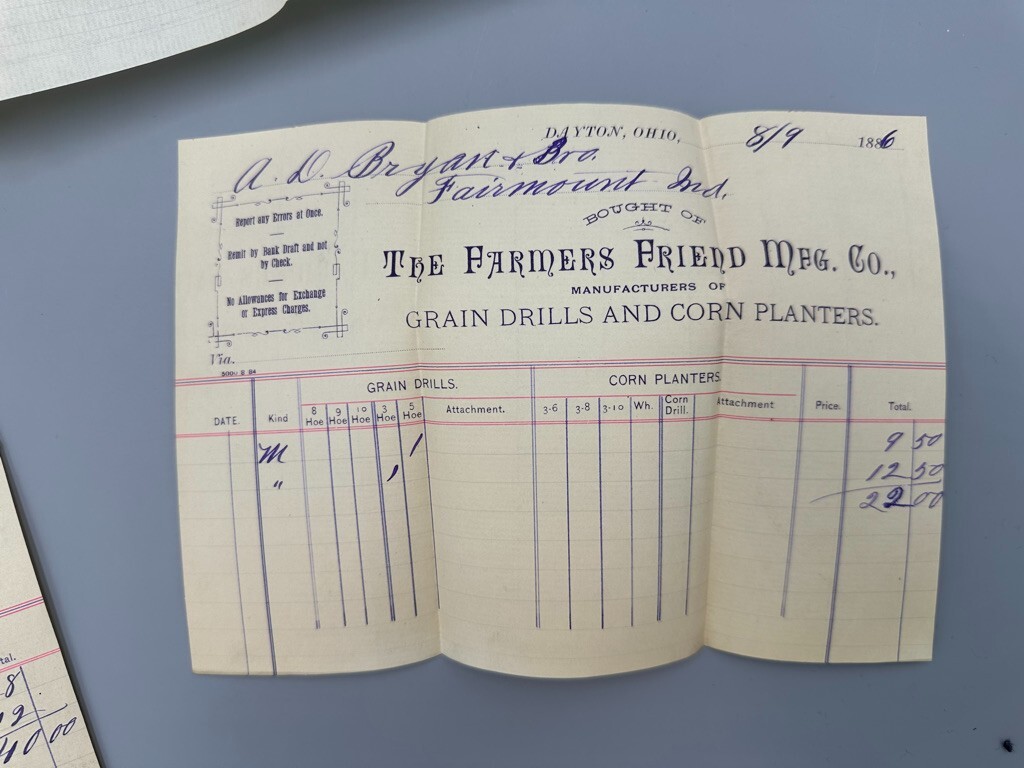 DAYTON, OHIO, 8/9 1886
A. D. Bryan & Bro.
Fairmount Ind.
BOUGHT OF
THE FARMERS FRIEND MFG. CO.,
MANUFACTURERS OF
GRAIN DRILLS AND CORN PLANTERS.
Report any Errors at Once.
Remit by Bank Draft and not
by Check.
No Allowances for Exchange
or Express Charges.
Via.
GRAIN DRILLS. CORN PLANTERS.
DATE. Kind 8 Hoe 9 Hoe 10 Hoe 3 Hoe 5 Hoe Attachment. 3-6 3-8 3-10 Wh. Corn Drill. Attachment Price. Total.
M 1 9 50
" 1 12 50
22 00
tal.
8
12
40 00